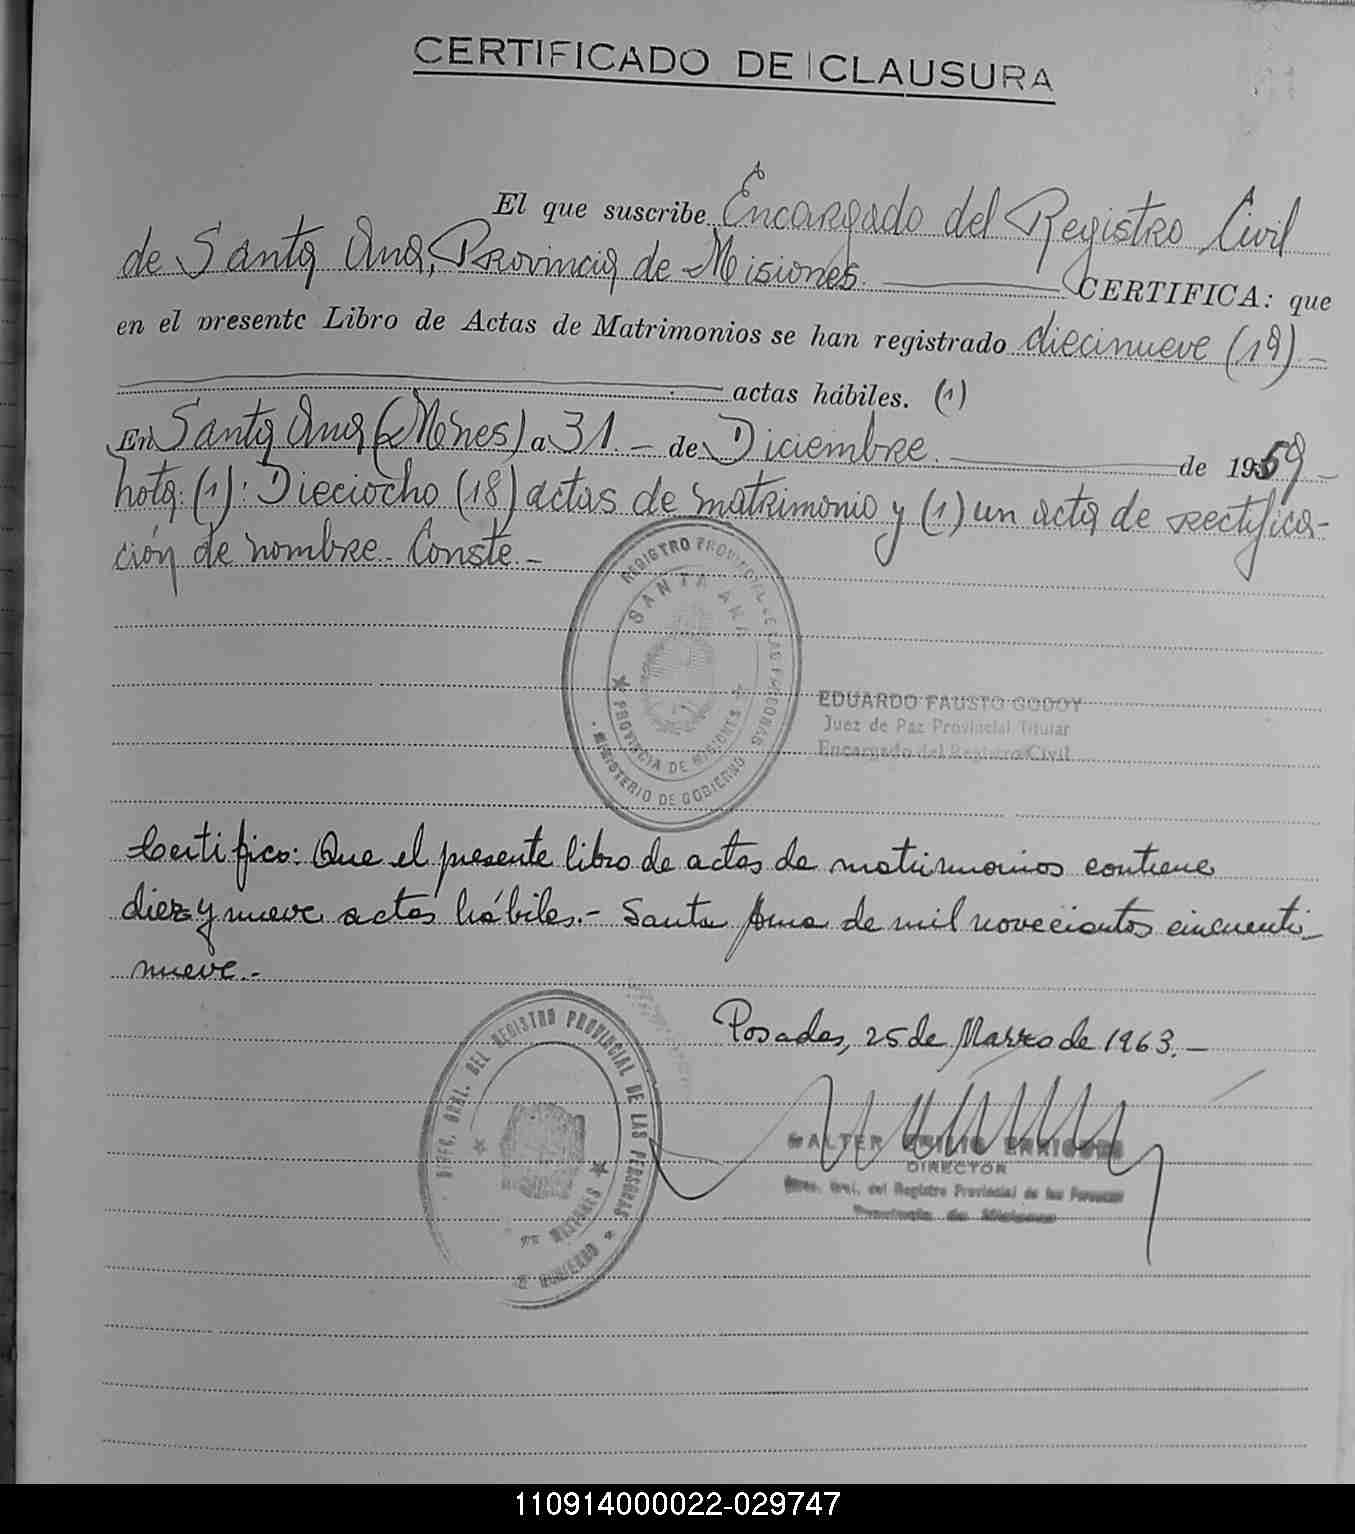 CERTIFICADO DE CLAUSURA
El que suscribe Encargado del Registro Civil
de Santa Ana, Provincia de Misiones. CERTIFICA: que
en el presente Libro de Actas de Matrimonios se han registrado diecinueve (19) -
actas hábiles. (1)
En Santa Ana (Mnes) a 31. - de Diciembre. de 1959 -
nota: (1): Dieciocho (18) actas de matrimonio y (1) un acta de rectifica-
ción de nombre. Conste. -
REGISTRO PROVINCIAL DE LAS PERSONAS
SANTA ANA
PROVINCIA DE MISIONES
MINISTERIO DE GOBIERNO
EDUARDO FAUSTO GODOY
Juez de Paz Provincial Titular
Encargado del Registro Civil
Certifico: Que el presente libro de actas de matrimonios contiene
diez y nueve actas hábiles.- Santa Ana de mil novecientos cincuenti-
nueve.-
Posadas, 25 de Marzo de 1963.-
DIREC. GRAL. DEL REGISTRO PROVINCIAL DE LAS PERSONAS
MISIONES
GOBIERNO
WALTER EMILIO
DIRECTOR
Direc. Gral. del Registro Provincial de las Personas
Provincia de Misiones
110914000022-029747